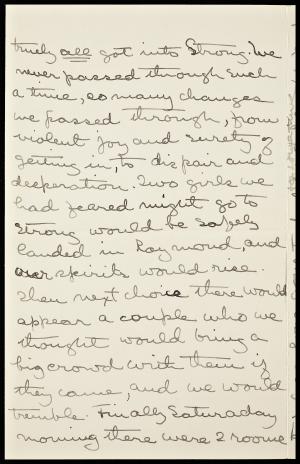 truely all got into Strong. We
never passed through such
a time, so many changes
we passed through, from
violent joy and surety of
getting in, to dispair and
desperation. Two girls we
had feared might go to
Strong would be safely
landed in Raymond, and
our spirits would rise.
Then next choice there would
appear a couple who we
thought would bring a
big crowd with them if
they came, and we would
tremble. Finally Saturaday
morning there were 2 rooms